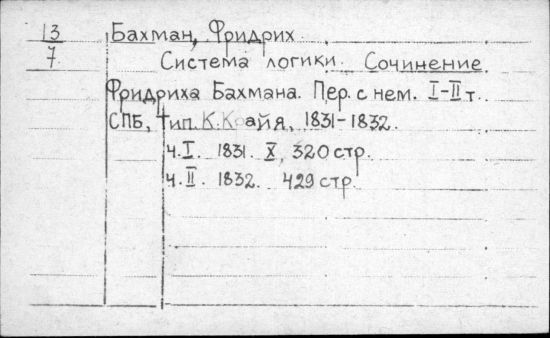 13 Бахман, Фридрих
7 Система логики. Сочинение
Фридриха Бахмана. Пер. с нем. I-II т.
СПБ, тип. К. Крайя, 1831-1832.
ч. I. 1831. X, 320 стр.
ч. II. 1832. 429 стр.